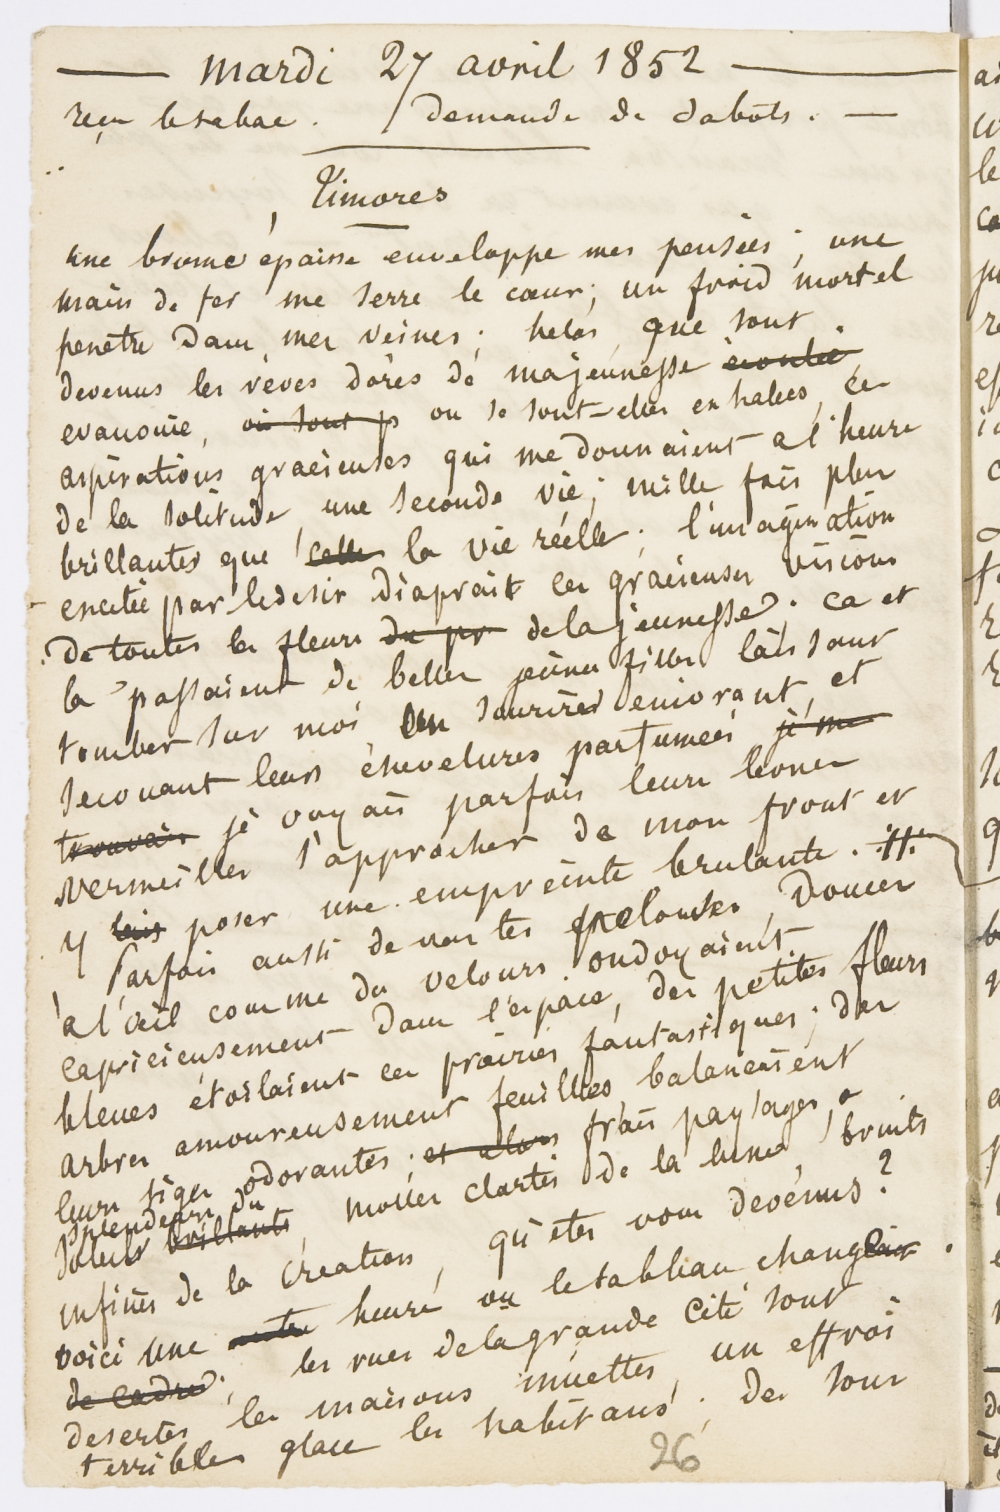 mardi 27 avril 1852
reçu le tabac. / Demande de sabots. —
Timores
une brume épaisse enveloppe mes pensées ; une
main de fer me serre le cœur ; un froid mortel
penetre dans mes veines ; helas que sont
devenus les reves dorés de ma jeunesse ecoulée
evanouie, où sont p ou se sont-elles exhalées, ces
aspirations gracieuses qui me donnaient a l'heure
de la solitude une seconde vie ; mille fois plus
brillantes que celle la vie réelle ; l'imagination
excitée par le desir diaprait ces gracieuses visions
de toutes les fleurs du pr de la jeunesse. ca et
la passaient de belles jeunes filles laissant
tomber sur moi un sourires enivrant, et
secouant leurs chevelures parfumées je me
trouvais je voyais parfois leurs levres
vermeilles s'approcher de mon front et
y lais poser une empreinte brulante. //.
Parfois aussi de vertes pelouses, douces
a l'œil comme du velours ondoyaient
capricieusement dans l'espace, des petites fleurs
bleues étoilaient ces prairies fantastiques ; des
arbres amoureusement feuilles balancaient
leurs tiges odorantes ; et alors frais paysages,
splendeurs du
soleils brillants, molles clartés de la lune, bruits
infinis de la création, qu'etes vous devenus ?
voici une autre heure ou le tableau change
de cadre ; les rues de la grande cité sont
desertes les maisons muettes, un effroi
terrible glace les habitans ; des sour
26